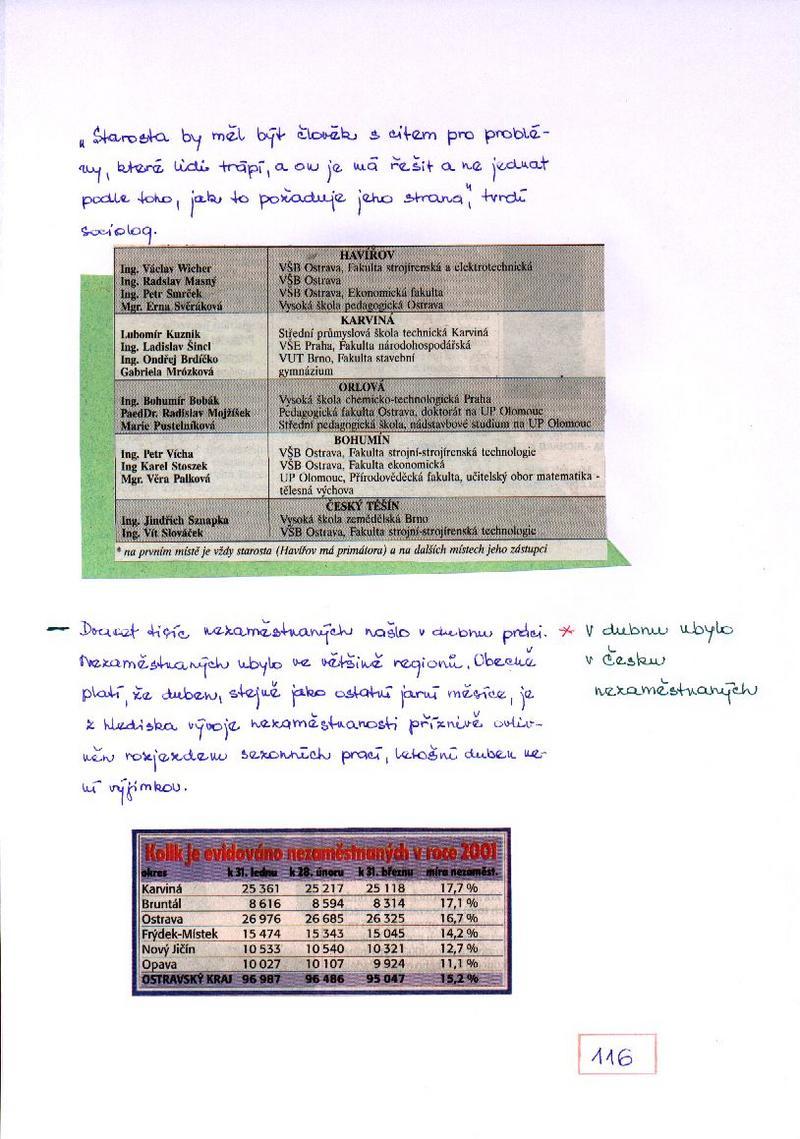 „Starosta by měl být člověk s citem pro problé-
my, které lidi trápí, a on je má řešit a ne jednat
podle toho, jak to požaduje jeho strana", tvrdí
sociolog.
HAVÍŘOV
Ing. Václav Wicher VŠB Ostrava, Fakulta strojírenská a elektrotechnická
Ing. Radslav Masný VŠB Ostrava
Ing. Petr Smrček VŠB Ostrava, Ekonomická fakulta
Mgr. Erna Svěráková Vysoká škola pedagogická Ostrava
KARVINÁ
Lubomír Kuzník Střední průmyslová škola technická Karviná
Ing. Ladislav Šincl VŠE Praha, Fakulta národohospodářská
Ing. Ondřej Brdíčko VUT Brno, Fakulta stavební
Gabriela Mrózková gymnázium
ORLOVÁ
Ing. Bohumír Bobák Vysoká škola chemicko-technologická Praha
PaedDr. Radislav Mojžíšek Pedagogická fakulta Ostrava, doktorát na UP Olomouc
Marie Pustelníková Střední pedagogická škola, nádstavbové studium na UP Olomouc
BOHUMÍN
Ing. Petr Vícha VŠB Ostrava, Fakulta strojní-strojírenská technologie
Ing Karel Stoszek VŠB Ostrava, Fakulta ekonomická
Mgr. Věra Palková UP Olomouc, Přírodověděcká fakulta, učitelský obor matematika -
tělesná výchova
ČESKÝ TĚŠÍN
Ing. Jindřich Sznapka Vysoká škola zemědělská Brno
Ing. Vít Slováček VŠB Ostrava, Fakulta strojní-strojírenská technologie
* na prvním místě je vždy starosta (Havířov má primátora) a na dalších místech jeho zástupci
– Dvacet tisíc nezaměstnaných našlo v dubnu práci. * V dubnu ubylo
Nezaměstnaných ubylo ve většině regionů. Obecně v Česku
platí, že duben, stejně jako ostatní jarní měsíce, je nezaměstnaných
z hlediska vývoje nezaměstnanosti příznivě ovliv-
něn rozjezdem sezonních prací, letošní duben ne-
ní výjimkou.
Kolik je evidováno nezaměstnaných v roce 2001
okres k 31. lednu k 28. únoru k 31. březnu míra nezaměst.
Karviná 25 361 25 217 25 118 17,7 %
Bruntál 8 616 8 594 8 314 17,1 %
Ostrava 26 976 26 685 26 325 16,7 %
Frýdek-Místek 15 474 15 343 15 045 14,2 %
Nový Jičín 10 533 10 540 10 321 12,7 %
Opava 10 027 10 107 9 924 11,1 %
OSTRAVSKÝ KRAJ 96 987 96 486 95 047 15,2 %
116